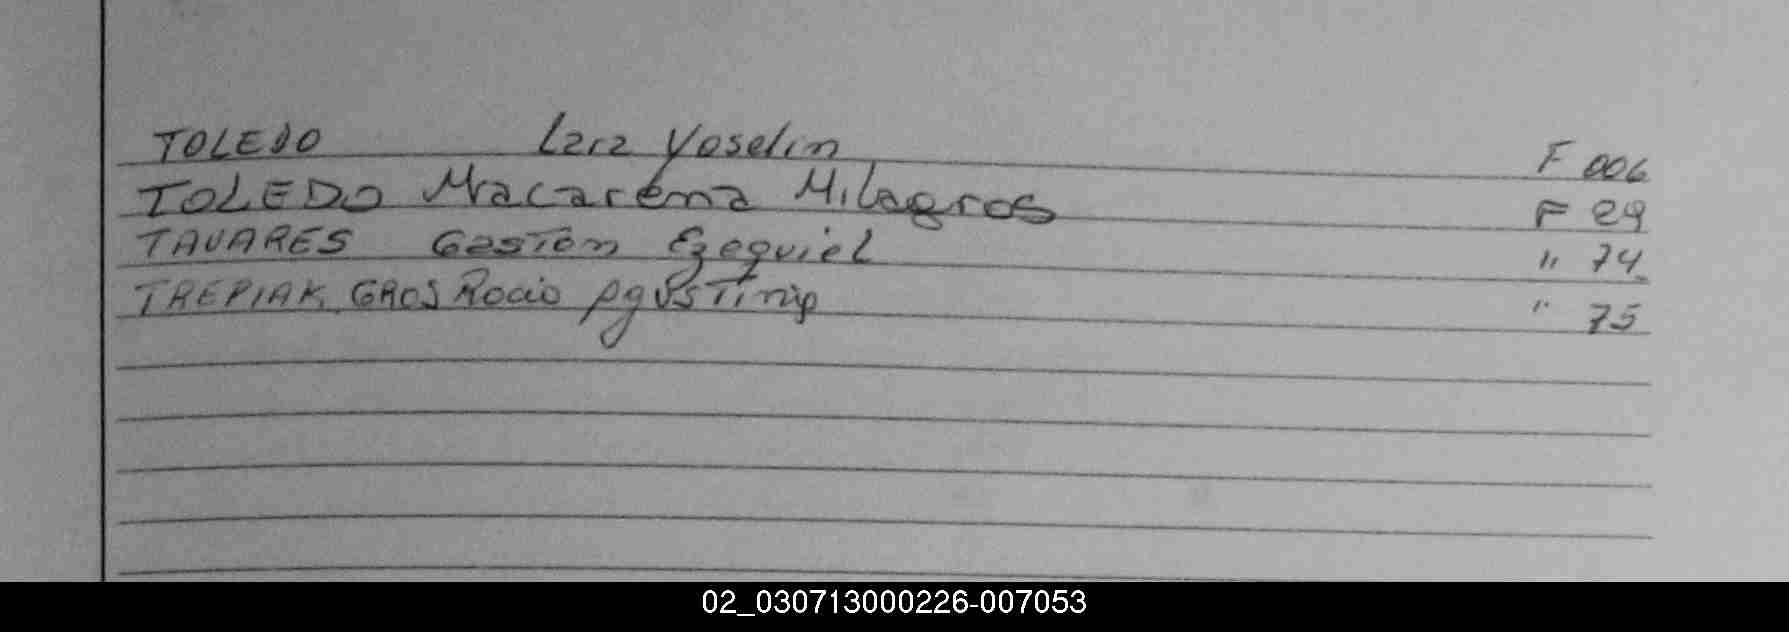 TOLEDO Lara Yoselin F 006
TOLEDO Macarena Milagros F 29
TAVARES Gastón Ezequiel " 74
TREPIAK GROS Rocio Agustina " 75
02_030713000226-007053